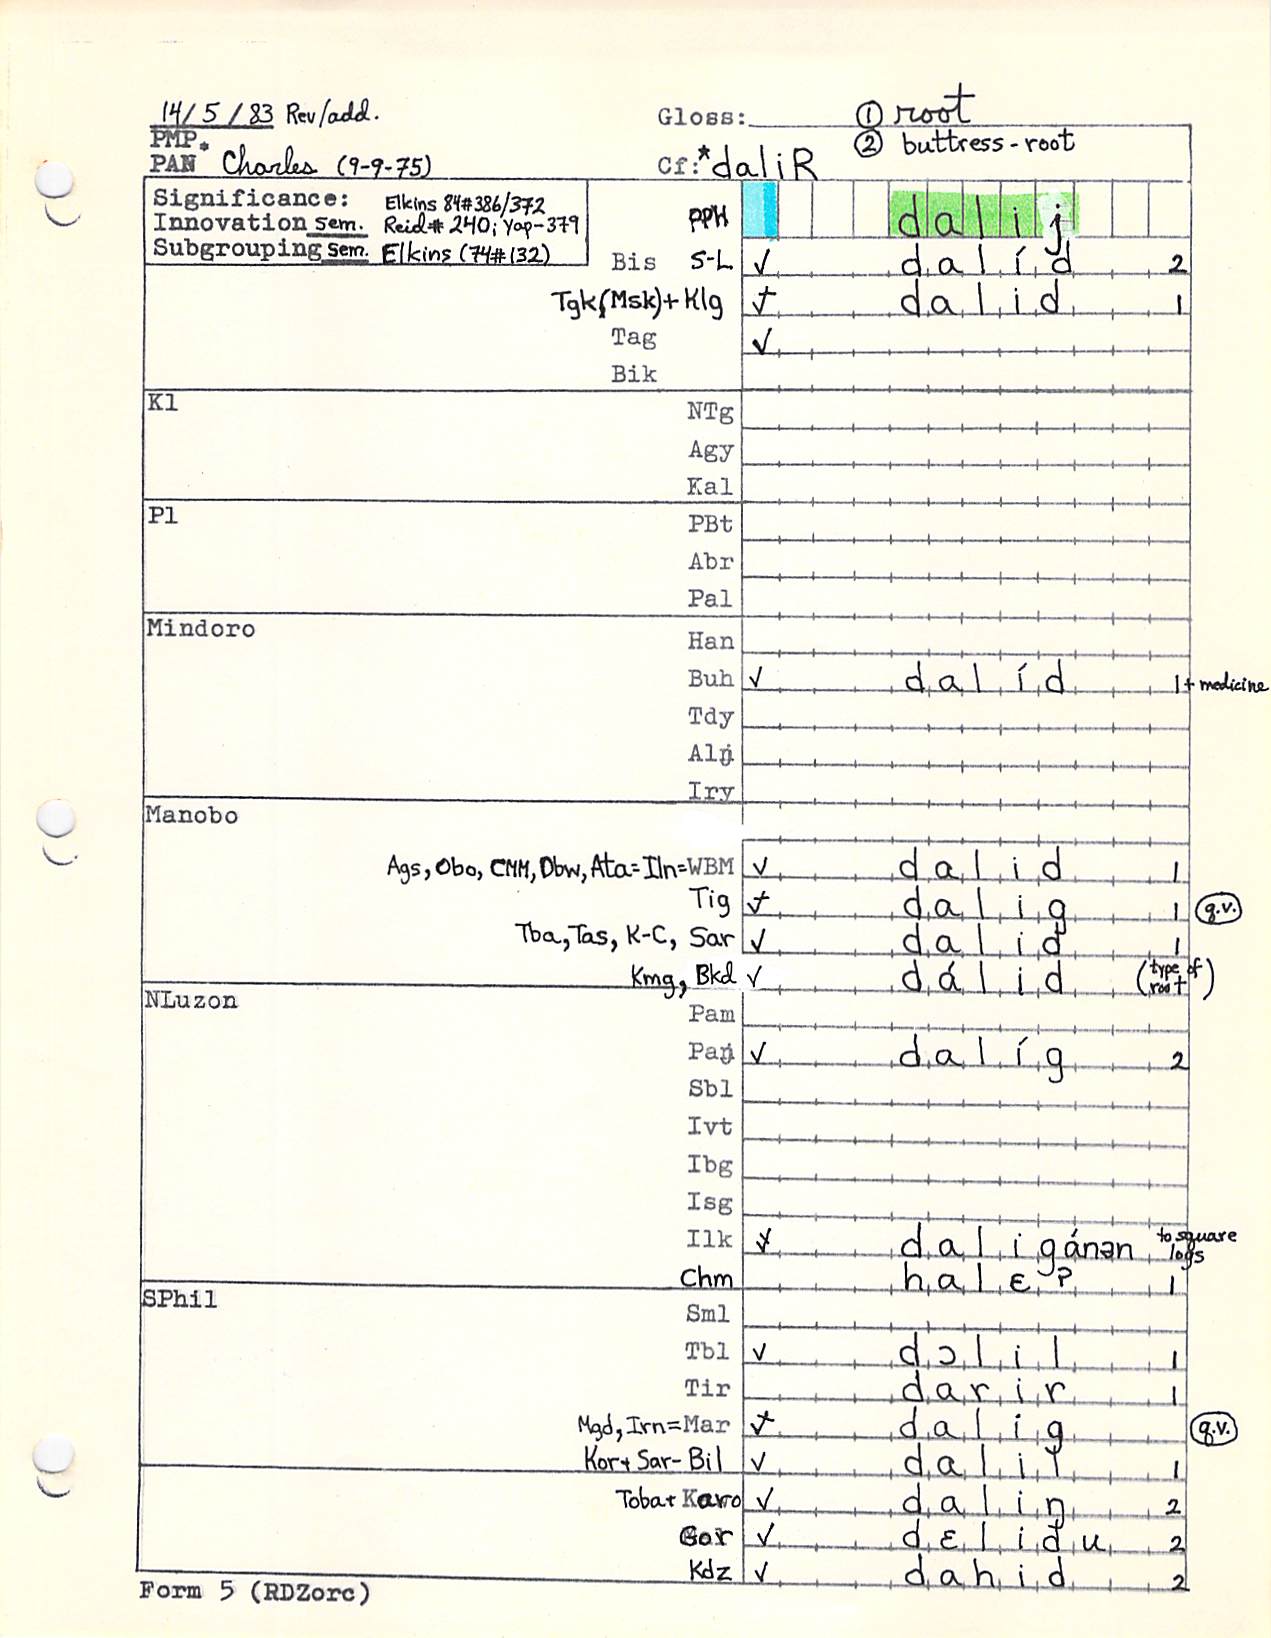 14/5/83 Rev/add. Gloss: ① root
PMP. ② buttress-root
PAN Charles (9-9-75) Cf: *daliR
Significance: Elkins 84#386/372 PPH dalij
Innovation sem. Reid# 240; Yap-379
Subgrouping sem. Elkins (74#132)
Bis S-L √ dalíd 2
Tgk(Msk)+Klg dalid 1
Tag √
Bik
Kl
NTg
Agy
Kal
Pl
PBt
Abr
Pal
Mindoro
Han
Buh √ dalíd 1+ medicine
Tdy
Alŋ
Iry
Manobo
Ags, Obo, CMM, Dbw, Ata=Iln=WBM √ dalid 1
Tig dalig 1 q.v.
Tba, Tas, K-C, Sar √ dalid 1
Kmg, Bkd √ dálid (type of root)
NLuzon
Pam
Paŋ √ dalíg 2
Sbl
Ivt
Ibg
Isg
Ilk daligánən to square logs
Chm halɛʔ 1
SPhil
Sml
Tbl √ dɔlil 1
Tir darir 1
Mgd, Irn=Mar dalig q.v.
Kor+ Sar-Bil √ dalil 1
Toba+ Karo √ daliŋ 2
√ dɛlidu 2
Kdz √ dahid 2
Form 5 (RDZorc)